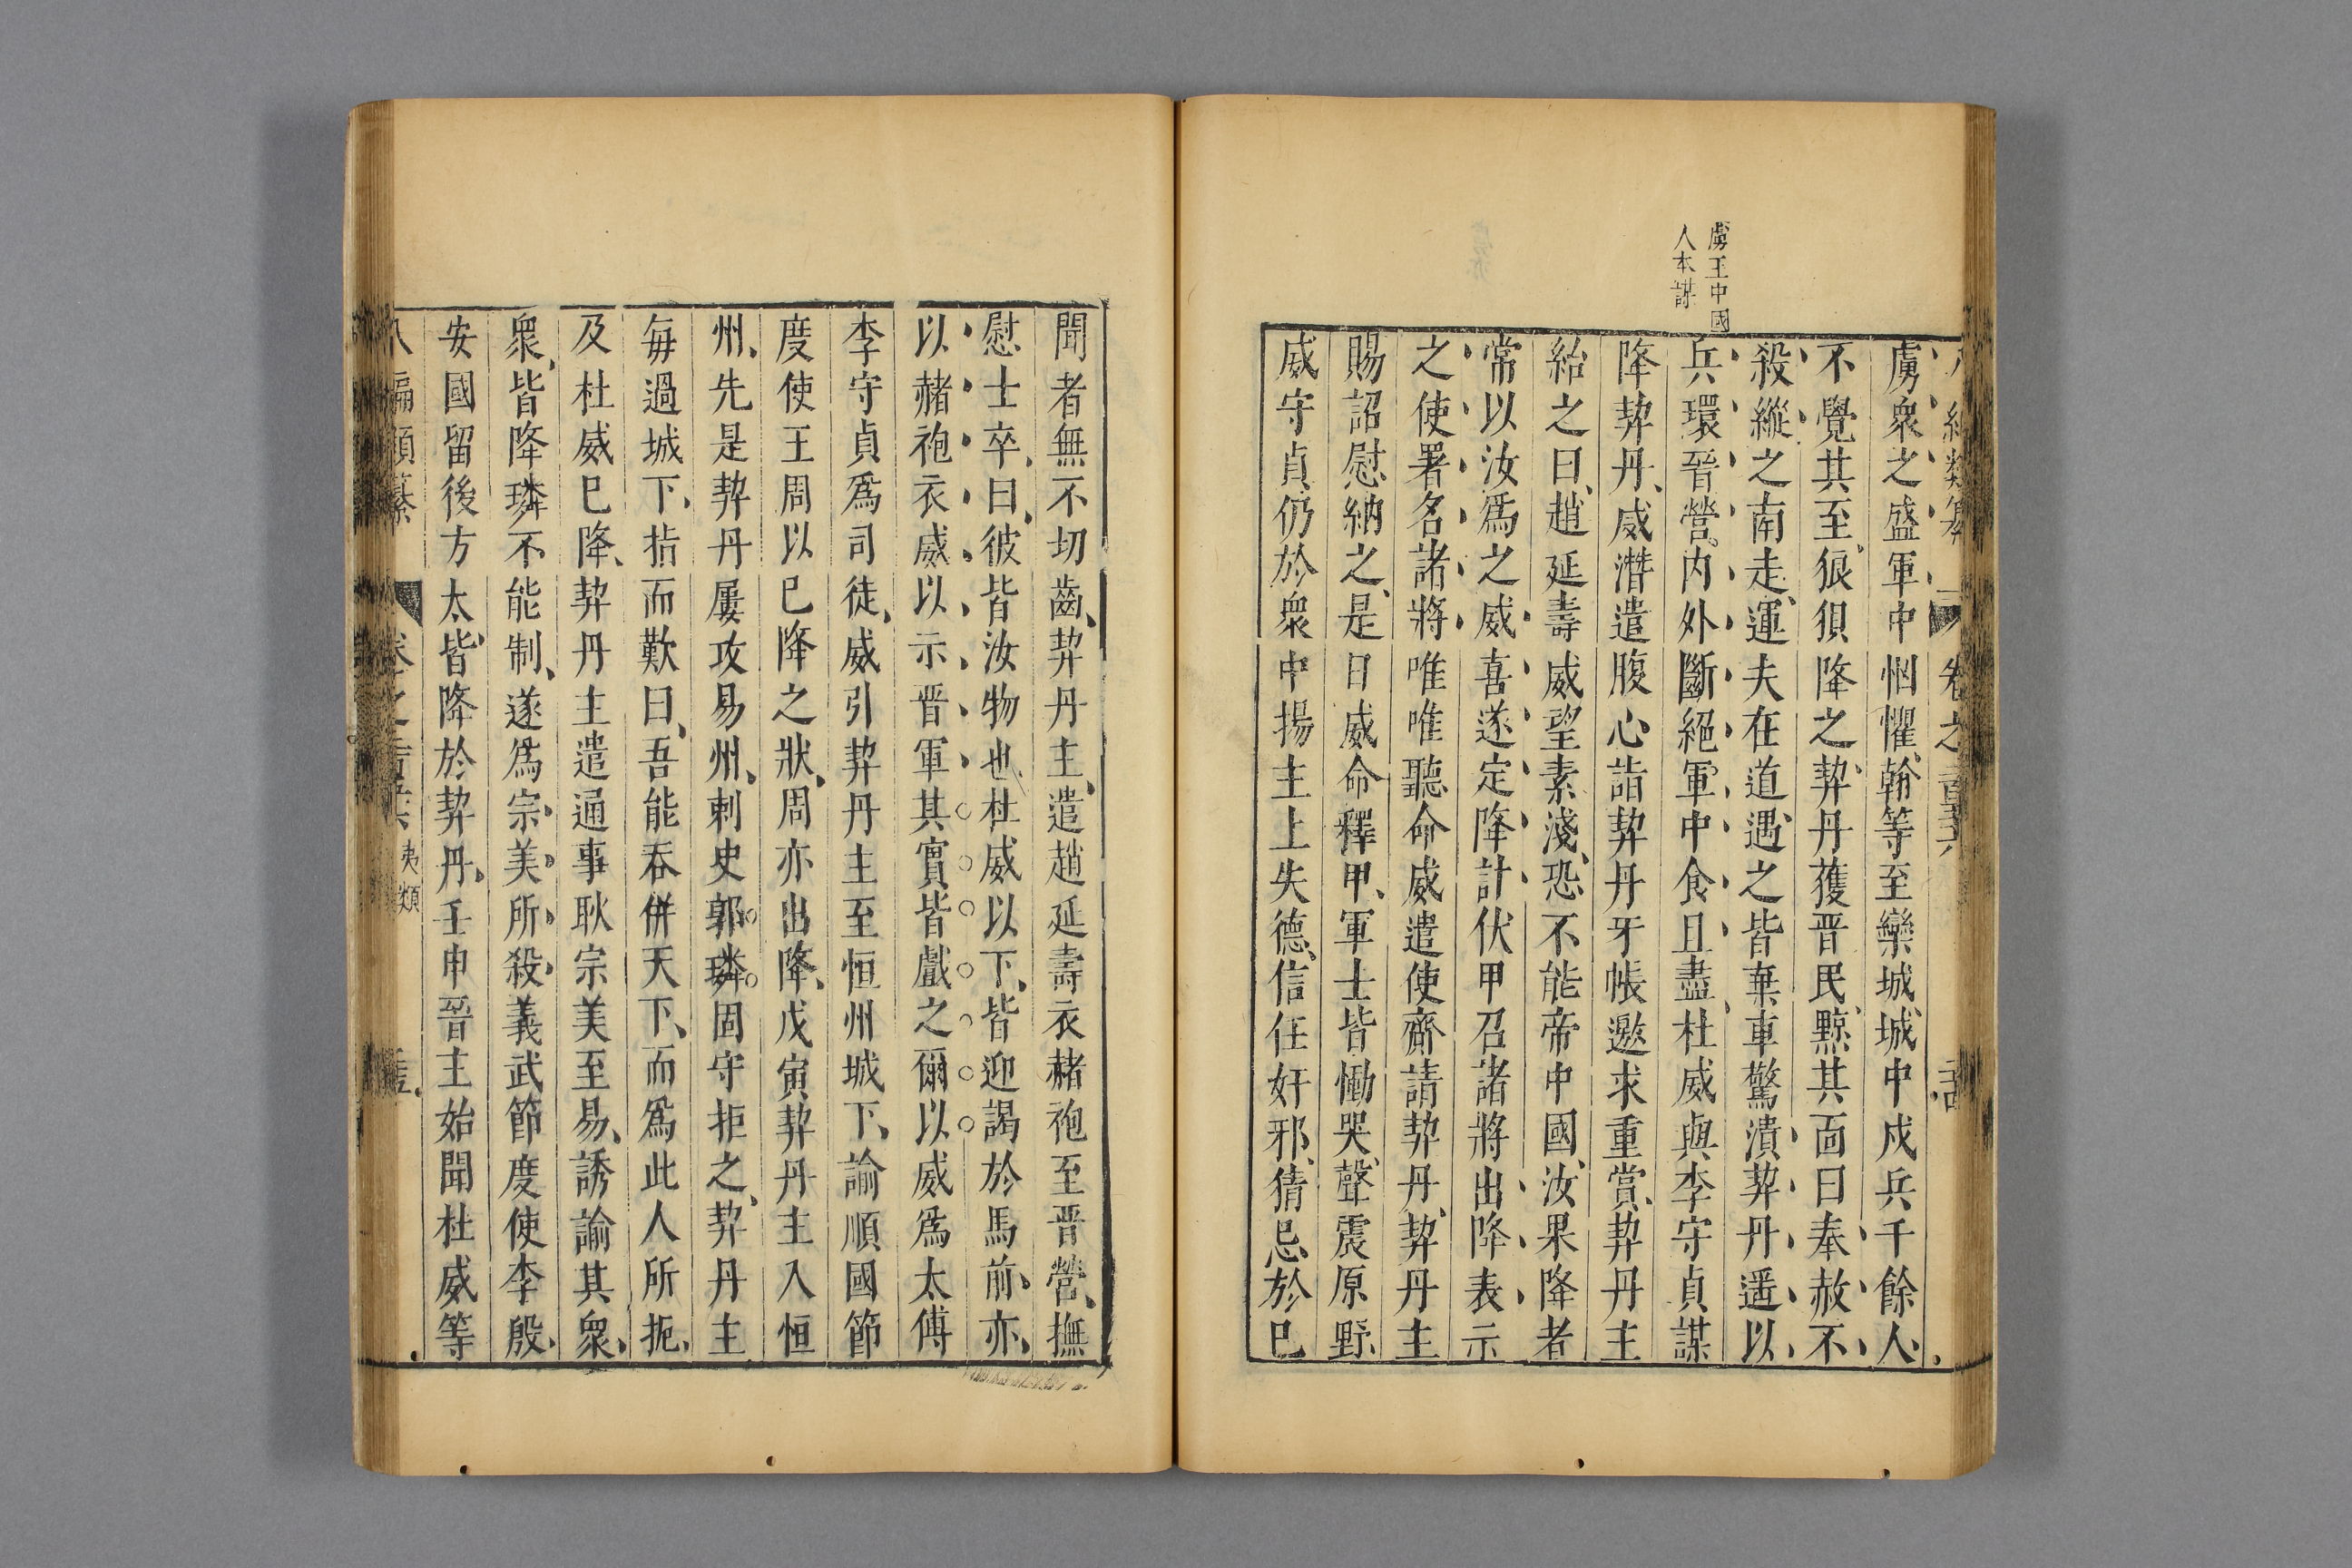 虜主中國
人本謀
編類纂 卷之一百三六
虜衆之盛軍中恟懼翰等至欒城城中戍兵千餘人
不覺其至狼狽降之契丹獲晉民黥其面曰奉赦不
殺縱之南走運夫在道遇之皆棄車驚潰契丹遥以
兵環晉營内外斷絕軍中食且盡杜威與李守貞謀
降契丹威潛遣腹心詣契丹牙帳邀求重賞契丹主
紿之曰趙延壽威望素淺恐不能帝中國汝果降者
常以汝爲之威喜遂定降計伏甲召諸將出降表示
之使署名諸將唯唯聽命威遣使齎請契丹契丹主
賜詔慰納之是日威命釋甲軍士皆慟哭聲震原野
威守貞仍於衆中揚主上失德信任奸邪猜忌於巳
聞者無不切齒契丹主遣趙延壽衣赭袍至晋營撫
慰士卒曰彼皆汝物也杜威以下皆迎謁於馬前亦
以赭袍衣威以示晋軍其實皆戲之爾以威爲太傅
李守貞爲司徒威引契丹主至恒州城下諭順國節
度使王周以巳降之狀周亦出降戊寅契丹主入恒
州先是契丹屢攻易州刺史郭璘固守拒之契丹主
每過城下指而歎曰吾能吞併天下而爲此人所扼
及杜威巳降契丹主遣通事耿宗美至易誘諭其衆
衆皆降璘不能制遂爲宗美所殺義武節度使李殷
安國留後方太皆降於契丹壬申晉主始聞杜威等
八編類纂 卷之 夷類